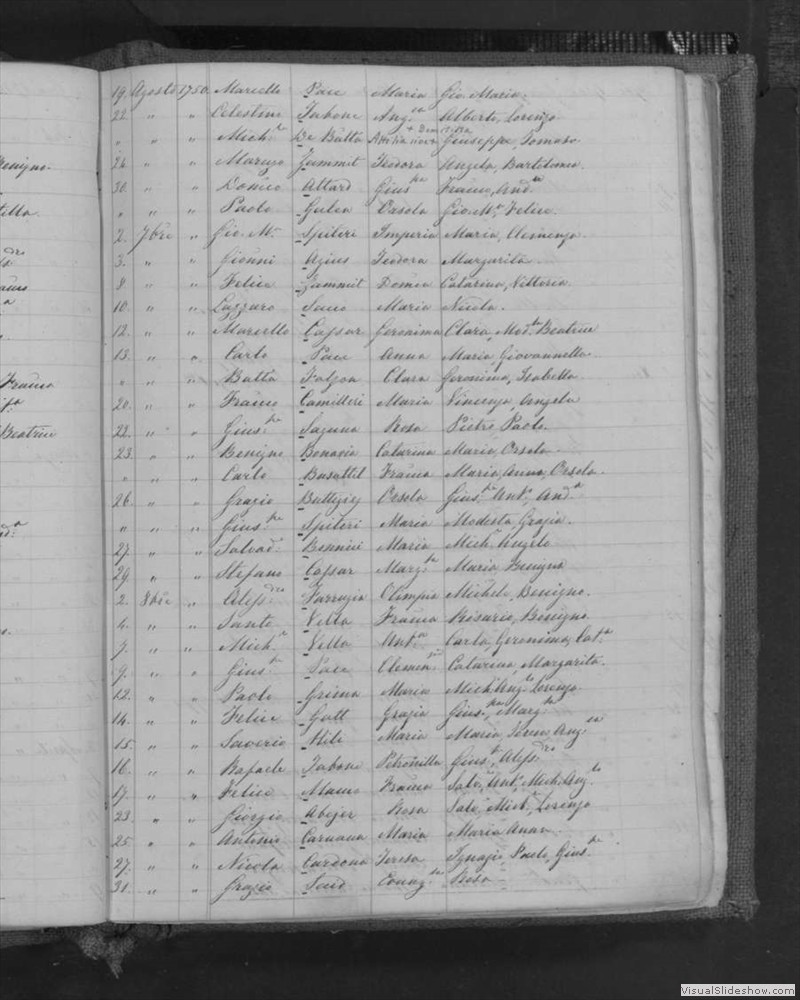 Benigno.
Franca
Beatrice
19. Agosto 1750. Marcello Pace Maria Gio. Maria.
22. " " Celestino Tabone Ang.ca Alberto, Lorenzo
" " " Mich.l De Batta Giuseppa, Tomaso.
24. " " Zammit Teodora Angela, Bartolomeo.
30. " " Domco Attard Gius.pa Franco, And.a
" " " Paolo Gulea Orsola Gio. M.a, Felice.
2. 7bre " Gio. M.a Spiteri Imperia Maria, Clemenza.
3. " " Gionni Agius Teodora Margarita.
8. " " Felice Zammit Domca Catarina, Vittoria.
10. " " Lazzaro Maria Nicola.
12. " " Marcello Cassar Geronima Clara, Mod.ta Beatrice
13. " " Carlo Pace Anna Maria, Giovannella
" " " Batta Falzon Clara Geronima, Isabella
20. " " Franco Camilleri Maria Vincenza, Angela
22. " " Gius.pe Saguna Rosa Pietro, Paolo.
23. " " Benigno Bonavia Catarina Maria, Orsola.
" " " Carlo Busuttil Franca Maria, Anna, Orsola.
26. " " Grazio Buttgieg Orsola Gius.pe Ant.o And.a
" " " Gius.pe Spiteri Maria Modesta, Grazia.
27. " " Salvad.e Bonnici Maria Mich.l Angelo
29. " " Stefano Cassar Marg.ta Maria Benigna
2. 8bre " Aless.dro Farrugia Olimpia Michele, Benigno.
4. " " Sante Vella Franca Rosario, Benigno.
7. " " Mich.l Vella Ant.a Carlo, Geronimo, Cat.a
9. " " Gius.pe Pace Clemen.za Catarina, Margarita.
12. " " Paolo Grima Maria Mich.l Ang.lo Lorenzo.
14. " " Felice Gatt Grazia Gius.pa, Marg.ta
15. " " Saverio Mili Maria Maria, Teresa, Ang.ca
16. " " Rafaele Tabone Petronilla Gius.e, Aless.dro
17. " " Felice Franca Salv.e Ant.o, Mich. Ang.lo
23. " " Giorgio Abejer Rosa Salv.e Mich.l, Lorenzo
25. " " Antonio Caruana Maria Maria Anna.
27. " " Nicola Cardona Teresa Ignazio, Paolo, Gius.pe
31. " " Grazio Said Evang.ta Rosa
VisualSlideshow.com